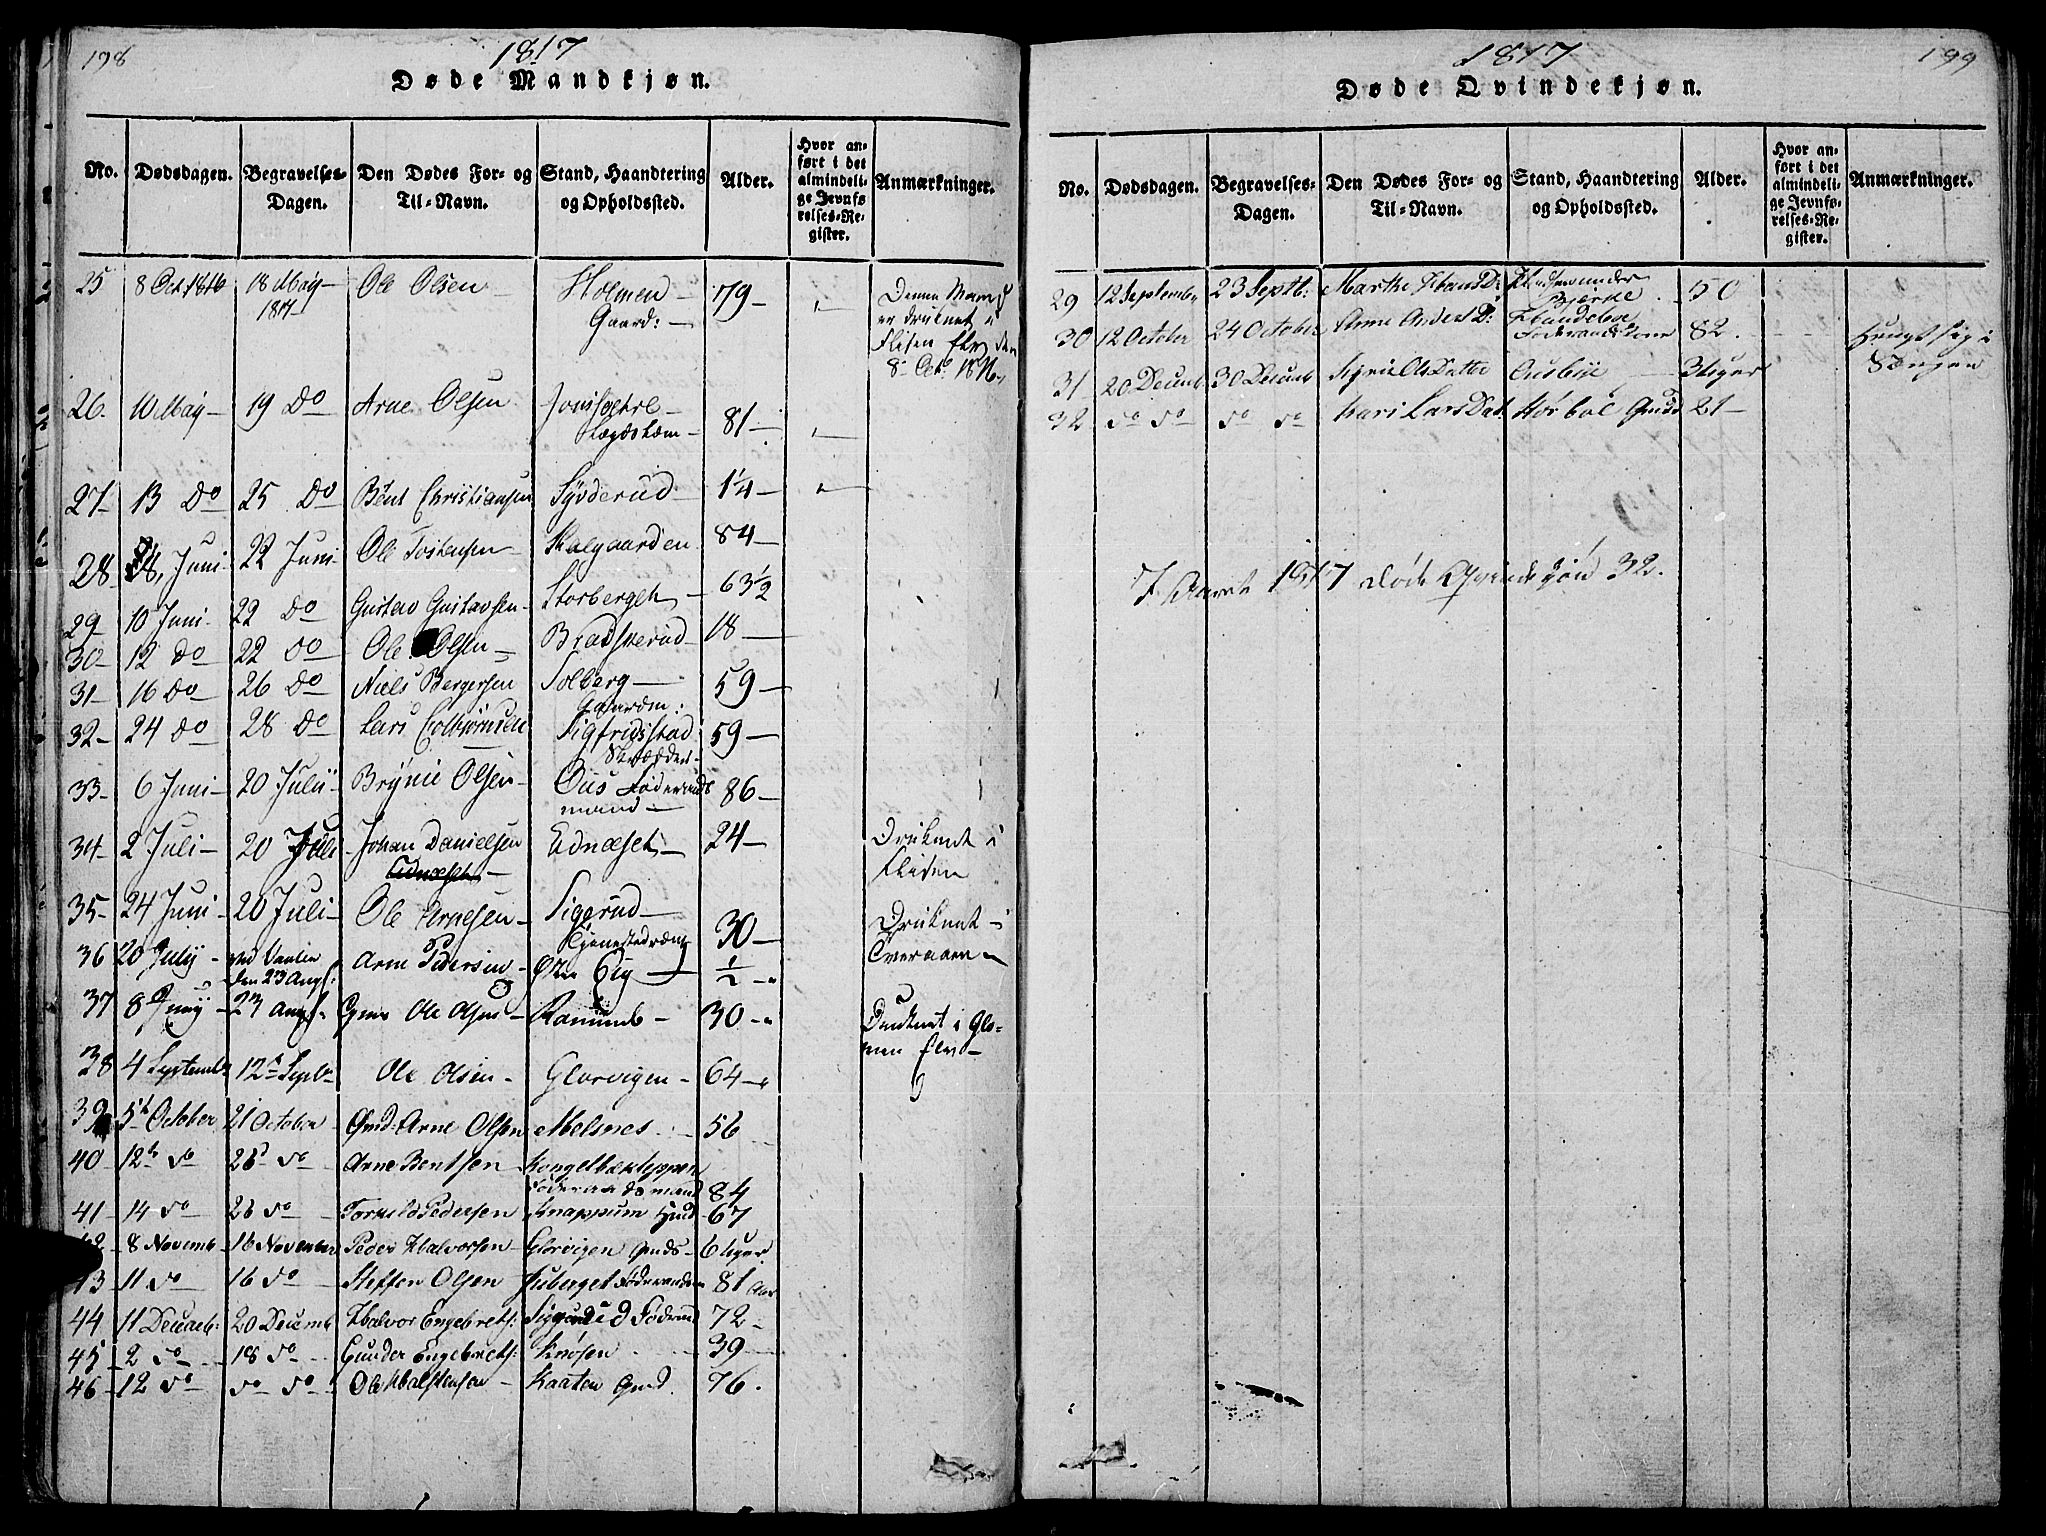 198
1817
Døde Mandkjøn.
No. Dødsdagen. Begravelses-Dagen. Den Dødes For- og Til-Navn. Stand, Haandtering og Opholdssted. Alder. Hvor anført i det almindelige Jevnførelses-Register. Anmærkninger.
25 8 Oct. 1816 18 May 1817 Ole Olsen Holmen Gaard: 79 Denne Mand er druknet i Flisen Elv den 8 Oct: 1816
26. 10 May 19 Do Arne Olsen Lægdslem 81
27 13 Do 25 Do Bent Christiansen Syvderud 1/4
28 Juni 22 Juni Ole Tostensen Kalgaarden 84
29 10 Juni 22 Do Gustav Gustavsen Storberget 63 1/2
30 12 Do 22 Do Ole Olsen Bradskerud 18
31 16 Do 26 Do Niels Bergersen Solberg Gaardm: 59
32 24 Do 28 Do Lars Colbiørnsen Sigfridsstad 59
33 6 Juni 20 Julii Brynie Olsen Ous Føderaads mand 86
34 2 Juli 20 Juli Johan Danielsen Ednæset Ednæset 24 Druknet i Flisen
35 24 Juni 20 Juli Ole Arnesen Sigerud 30 Druknet i Tveraaen
36 20 July ved Vaaler den 23 Aug: Arne Pedersen Øste Eig 1/2
37 8 Juny 23 Aug: Ole Olsen Ramund 30 Druknet i Glomen Elv
38 4 Septemb 12 Septb Ole Olsen Glorvigen 64
39 5t October 21 October Gmd: Arne Olsen Melsnes 56
40 12t do 26 do Arne Bentsen Kongelbæksteppen Føderaadsmand 84
41 14 do 26 do Torkild Pedersen Knappum Hmd 67
42 8 Novemb 16 November Peder Halvorsen Glorvigen Gmds 6 Uger
43 11 do 16 do Steffen Olsen Juberget Føderaadsm 81 Aar
44 11 Decemb: 20 Decemb Halvor Engebrets: Sigerud Føderaad 72
45 2 do 18 do Gunder Engebrets: Knøsen 39
46 12 do do do Ole Halstensen Kaaten Gmd. 76.
1817
199
Døde Qvindekjøn.
No. Dødsdagen. Begravelses-Dagen. Den Dødes For- og Til-Navn. Stand, Haandtering og Opholdssted. Alder. Hvor anført i det almindelige Jevnførelses-Register. Anmærkninger.
29 12 September 23 Septb: Marthe Hans D: under Bjerke 50
30 12 October 24 October Anne Anders D: Føderaads Kone 82. hengt sig i Sengen
31 20 Decemb 30 Decemb Sigrie Ols Datter Ousbye 3 Uger
32 do do do do Kari Lars Dat. Hørboe Gmd 21
I Aaret 1817 døde Qvindekjøn 32.